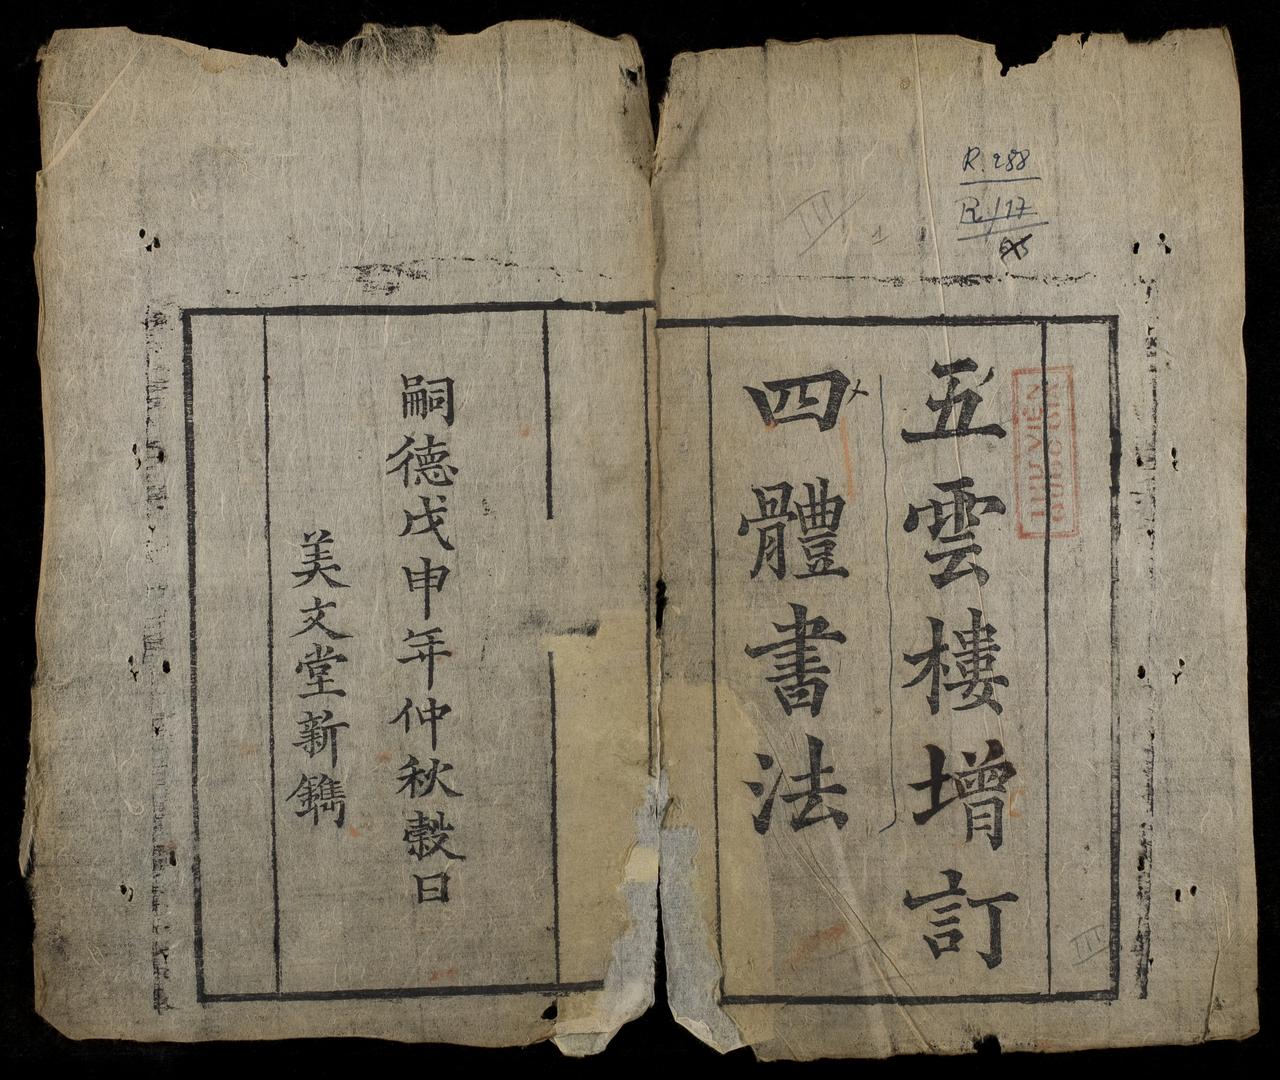 R.288
R.117
五雲樓增訂
四體書法
THƯ VIỆN
QUỐC GIA
III
III
嗣德戊申年仲秋穀日
美文堂新鐫